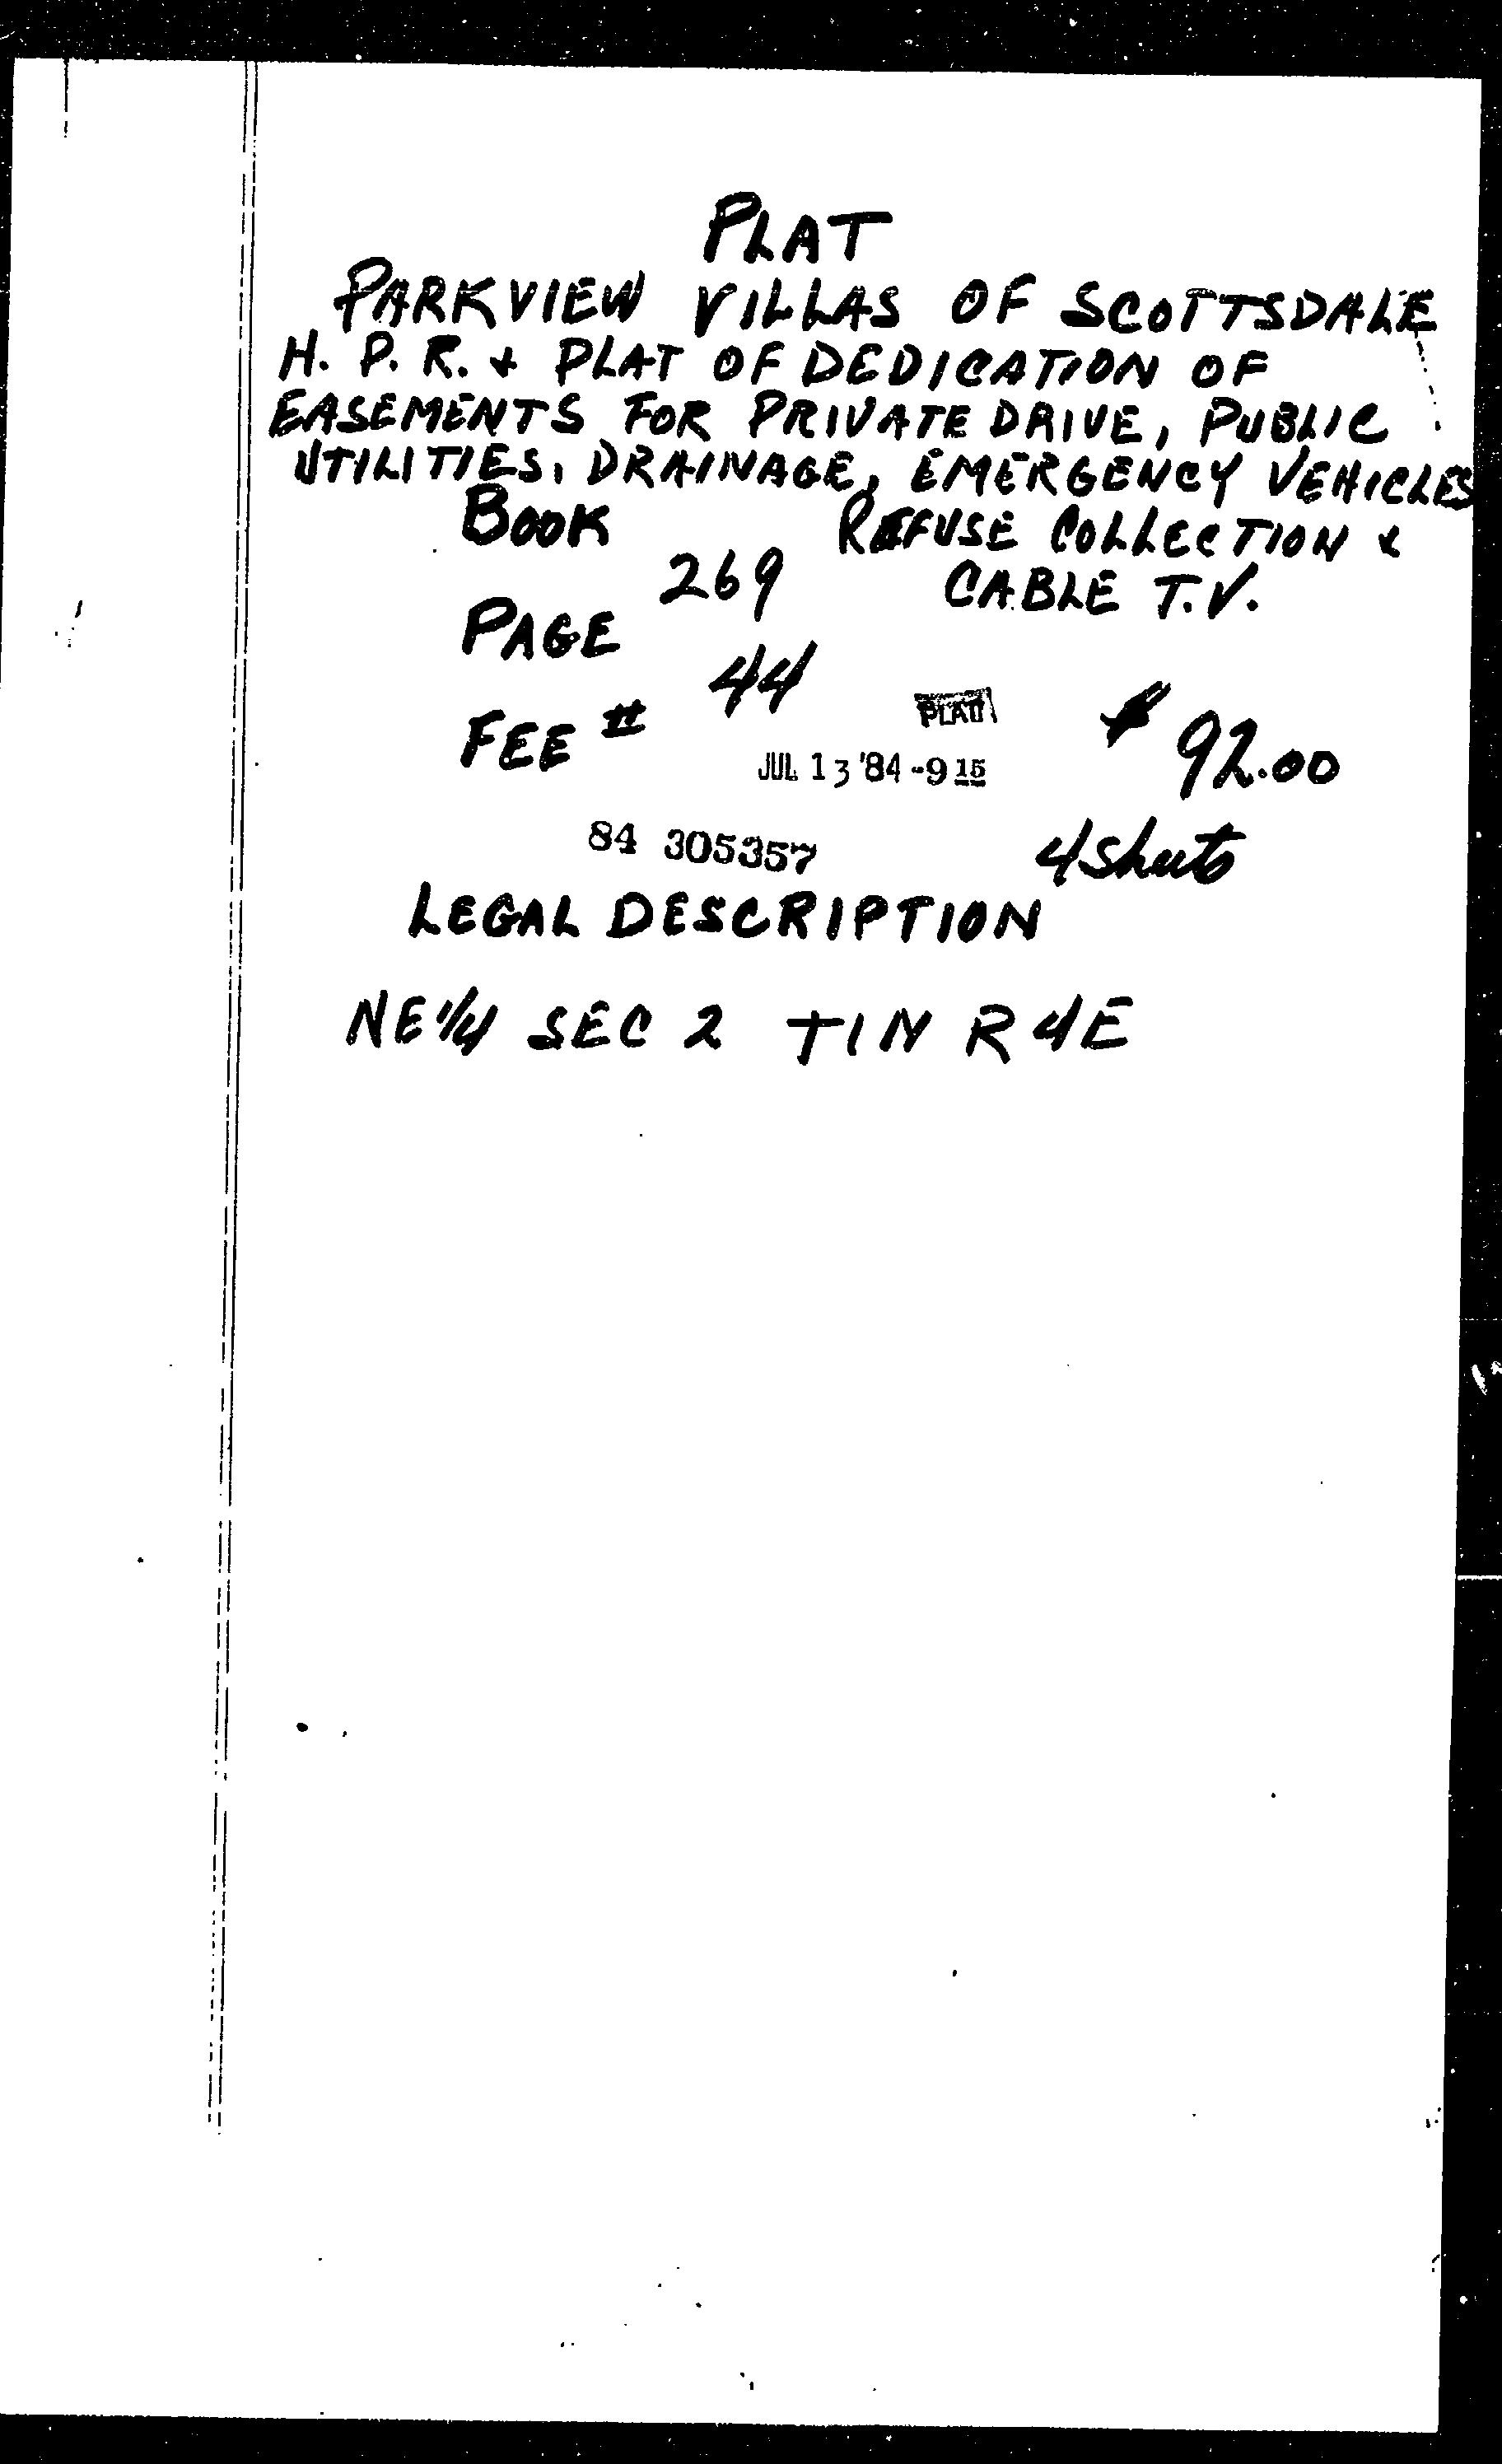 PLAT
PARKVIEW VILLAS OF SCOTTSDALE
H. P. R. + PLAT OF DEDICATION OF
EASEMENTS FOR PRIVATE DRIVE, PUBLIC
UTILITIES, DRAINAGE, EMERGENCY VEHICLES
BOOK REFUSE COLLECTION &
269 CABLE T.V.
PAGE
44
FEE # PLAT $ 92.00
JUL 13 '84 -9 15
84 305357 4 sheets
LEGAL DESCRIPTION
NE 1/4 SEC 2 T1N R4E